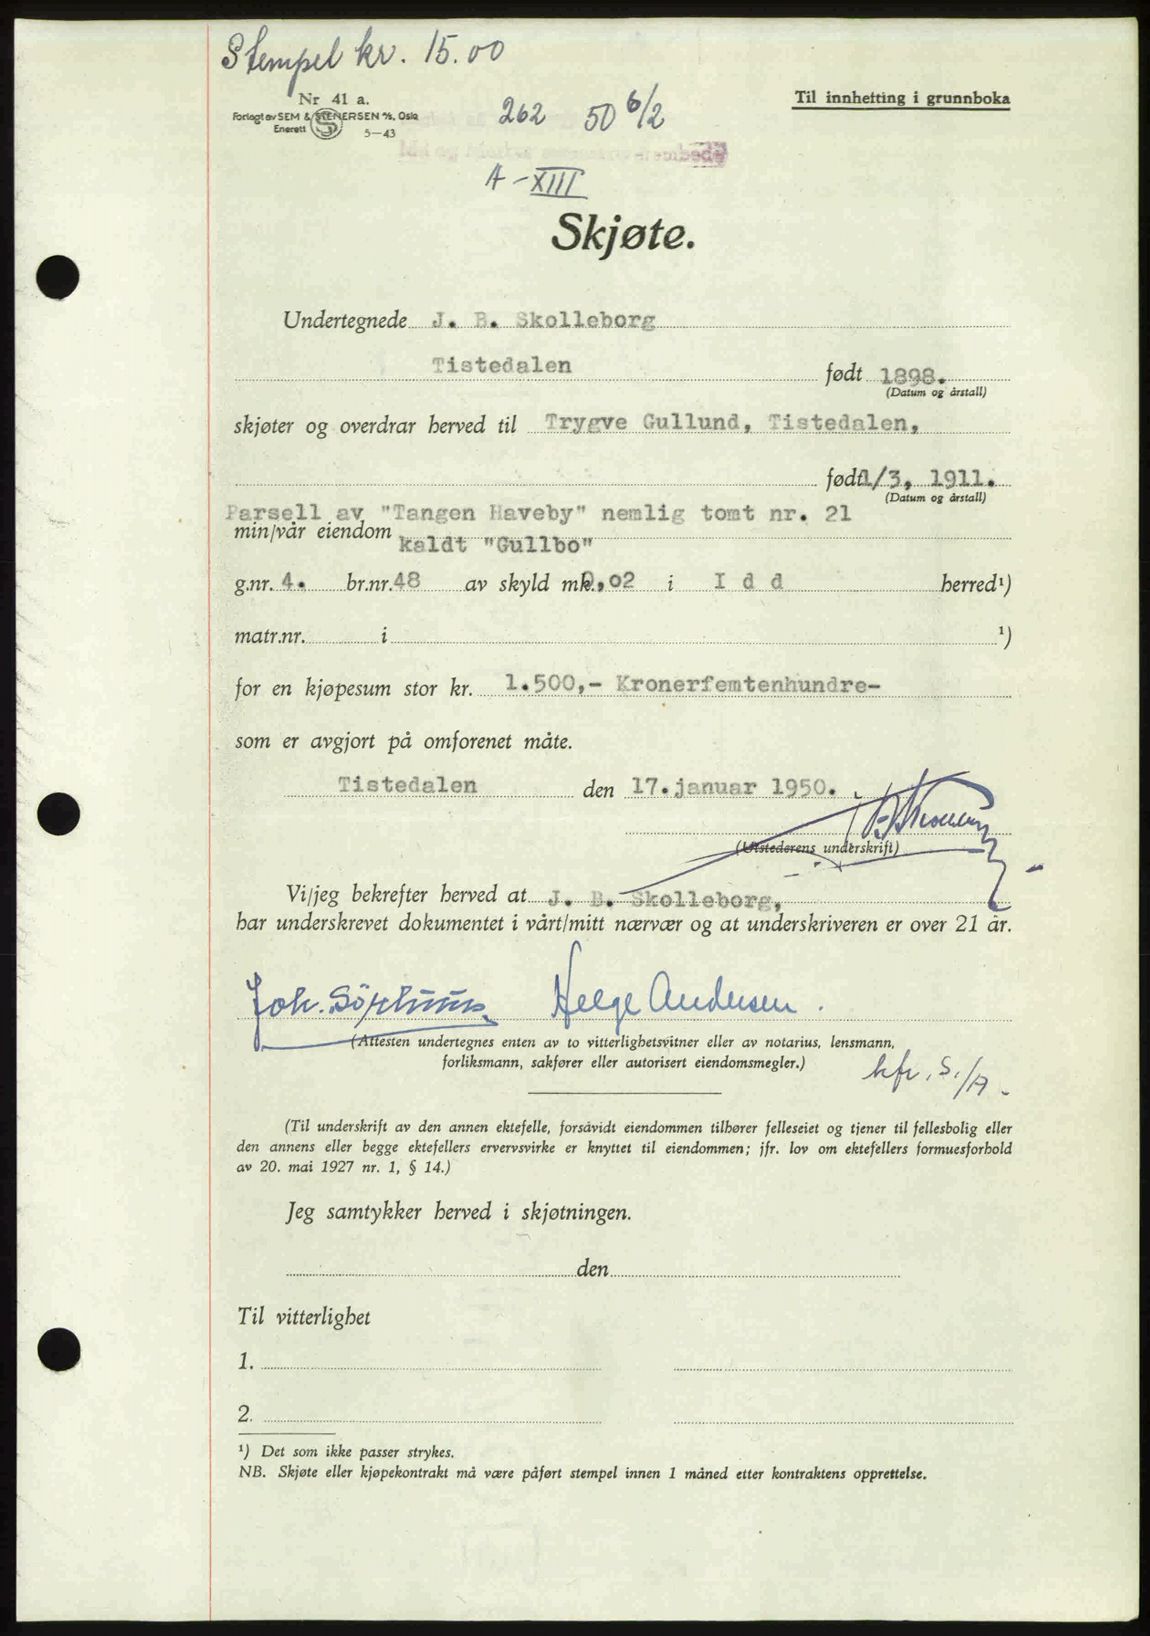 Stempel kr. 15.00
Nr 41 a.
Forlagt av SEM & STENERSEN A/S, Oslo
Enerett 5-43
Til innhefting i grunnboka
262 50 6/2
A - XIII
Skjøte.
Undertegnede J. B. Skolleborg
Tistedalen født 1898.
(Datum og årstall)
skjøter og overdrar herved til Trygve Gullund, Tistedalen,
født 1/3, 1911.
(Datum og årstall)
Parsell av "Tangen Haveby" nemlig tomt nr. 21
min/vår eiendom kaldt "Gullbo"
g.nr. 4. br.nr. 48 av skyld mk. 0,02 i I d d herred¹)
matr.nr. i ¹)
for en kjøpesum stor kr. 1.500,- Kronerfemtenhundre-
som er avgjort på omforenet måte.
Tistedalen den 17. januar 1950.
(Utstederens underskrift)
Vi/jeg bekrefter herved at J. B. Skolleborg,
har underskrevet dokumentet i vårt/mitt nærvær og at underskriveren er over 21 år.
Joh. Helge Andersen.
(Attesten undertegnes enten av to vitterlighetsvitner eller av notarius, lensmann,
forliksmann, sakfører eller autorisert eiendomsmegler.)
kfr. S./A.
(Til underskrift av den annen ektefelle, forsåvidt eiendommen tilhører felleseiet og tjener til fellesbolig eller
den annens eller begge ektefellers ervervsvirke er knyttet til eiendommen; jfr. lov om ektefellers formuesforhold
av 20. mai 1927 nr. 1, § 14.)
Jeg samtykker herved i skjøtningen.
den
Til vitterlighet
1.
2.
¹) Det som ikke passer strykes.
NB. Skjøte eller kjøpekontrakt må være påført stempel innen 1 måned etter kontraktens opprettelse.